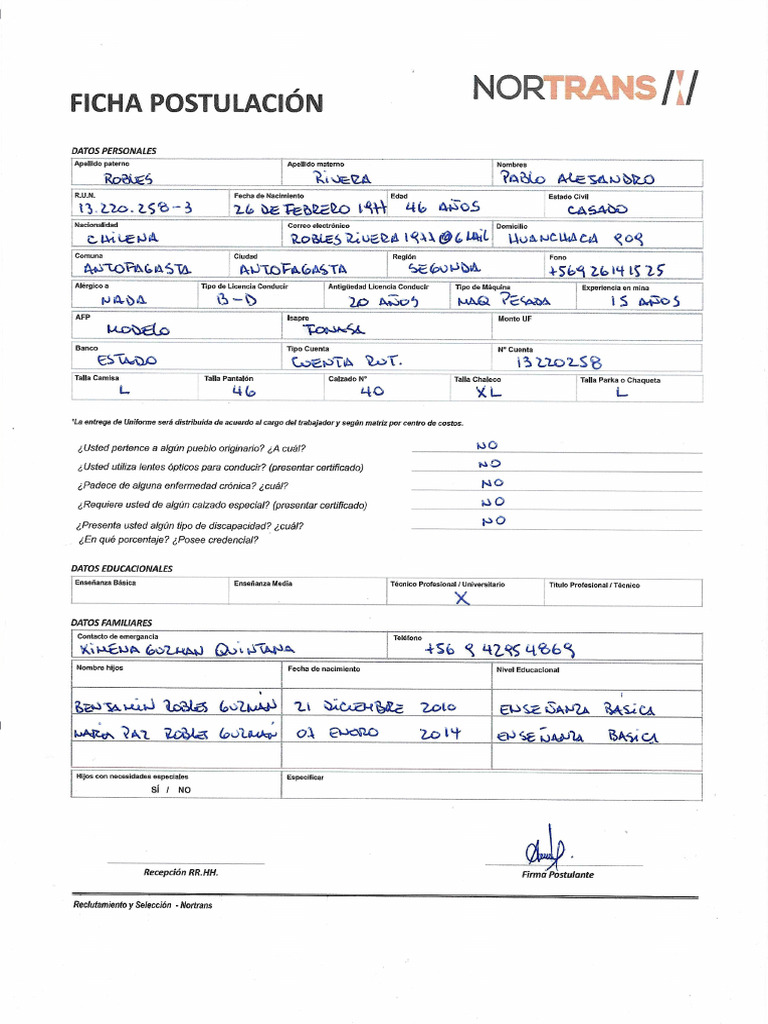 FICHA POSTULACIÓN
NORTRANS
DATOS PERSONALES
Apellido paterno Apellido materno Nombres
ROBLES RIVERA PABLO ALESANDRO
R.U.N. Fecha de Nacimiento Edad Estado Civil
13.220.258-3 26 DE FEBRERO 1977 46 AÑOS CASADO
Nacionalidad Correo electrónico Domicilio
CHILENA ROBLESRIVERA1977@GMAIL HUANCHACA 909
Comuna Ciudad Región Fono
ANTOFAGASTA ANTOFAGASTA SEGUNDA +56926141525
Alérgico a Tipo de Licencia Conducir Antigüedad Licencia Conducir Tipo de Máquina Experiencia en mina
NADA B-D 20 AÑOS MAQ PESADA 15 AÑOS
AFP Isapre Monto UF
MODELO FONASA
Banco Tipo Cuenta N° Cuenta
ESTADO CUENTA RUT. 13220258
Talla Camisa Talla Pantalón Calzado N° Talla Chaleco Talla Parka o Chaqueta
L 46 40 XL L
*La entrega de Uniforme será distribuida de acuerdo al cargo del trabajador y según matriz por centro de costos.
¿Usted pertenece a algún pueblo originario? ¿A cuál? NO
¿Usted utiliza lentes ópticos para conducir? (presentar certificado) NO
¿Padece de alguna enfermedad crónica? ¿cuál? NO
¿Requiere usted de algún calzado especial? (presentar certificado) NO
¿Presenta usted algún tipo de discapacidad? ¿cuál? NO
¿En qué porcentaje? ¿Posee credencial?
DATOS EDUCACIONALES
Enseñanza Básica Enseñanza Media Técnico Profesional / Universitario Titulo Profesional / Técnico
X
DATOS FAMILIARES
Contacto de emergencia Teléfono
XIMENA GUZMAN QUINTANA +56 9 42954869
Nombre hijos Fecha de nacimiento Nivel Educacional
BENJAMÍN ROBLES GUZMÁN 21 DICIEMBRE 2010 ENSEÑANZA BÁSICA
MARÍA PAZ ROBLES GUZMÁN 07 ENERO 2014 ENSEÑANZA BASICA
Hijos con necesidades especiales Especificar
SÍ / NO
Recepción RR.HH. Firma Postulante
Reclutamiento y Selección - Nortrans